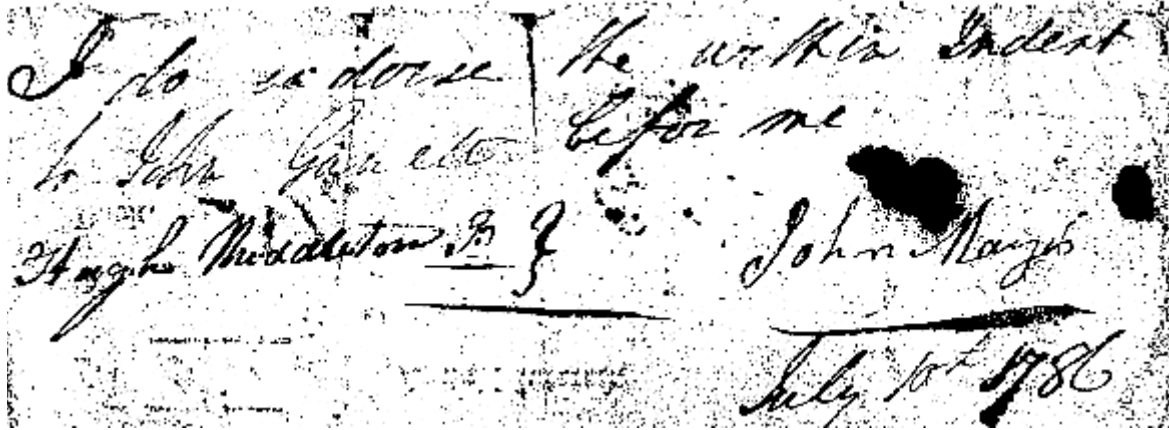 I do endorse the within Indent
to John Garrett before me
Hugh Middleton
John Mayes
July 10th 1786